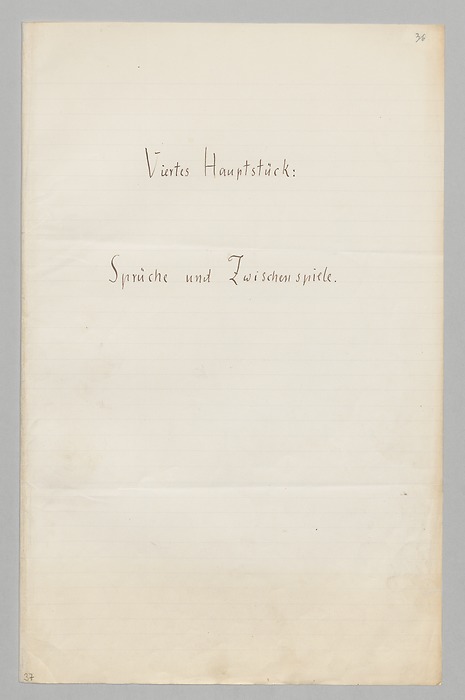 36
Viertes Hauptstück:
Sprüche und Zwischenspiele.
37